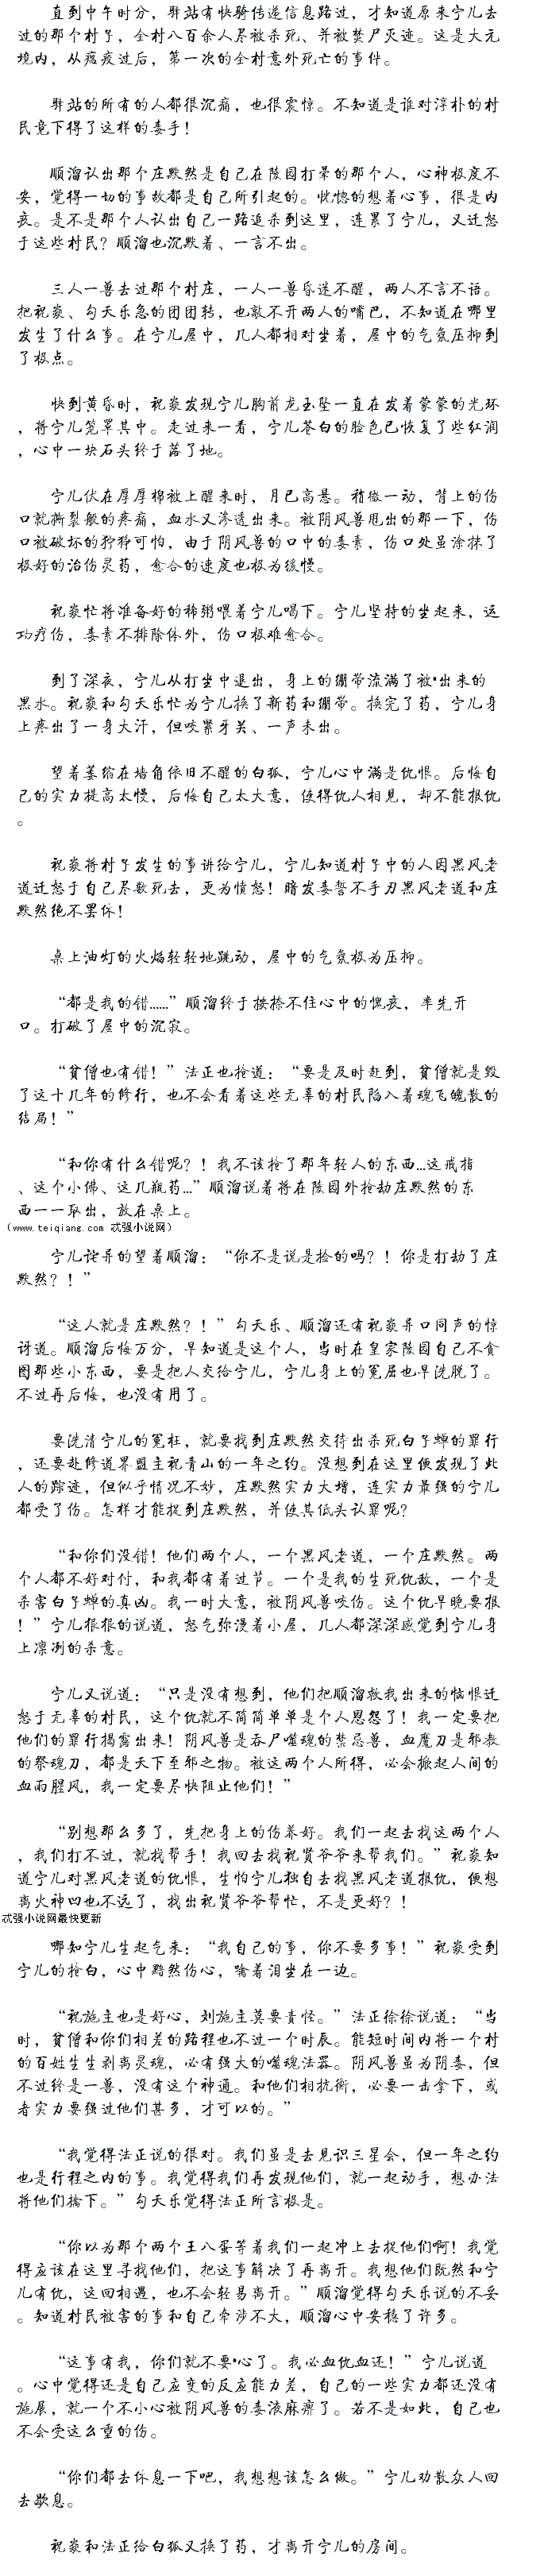 直到中午时分，驿站有快骑传递信息路过，才知道原来宁儿去
过的那个村子，全村八百余人尽被杀死、并被焚尸灭迹。这是大元
境内，从瘟疫过后，第一次的全村意外死亡的事件。
驿站的所有的人都很沉痛，也很震惊。不知道是谁对淳朴的村
民竟下得了这样的毒手！
顺溜认出那个庄默然是自己在陵园打晕的那个人，心神极度不
安，觉得一切的事故都是自己所引起的。恍惚的想着心事，很是内
疚。是不是那个人认出自己一路追杀到这里，连累了宁儿，又迁怒
于这些村民？顺溜也沉默着、一言不出。
三人一兽去过那个村庄，一人一兽昏迷不醒，两人不言不语。
把祝焱、勾天乐急的团团转，也敲不开两人的嘴巴，不知道在哪里
发生了什么事。在宁儿屋中，几人都相对坐着，屋中的气氛压抑到
了极点。
快到黄昏时，祝焱发现宁儿胸前龙玉坠一直在发着蒙蒙的光环
，将宁儿笼罩其中。走过来一看，宁儿苍白的脸色已恢复了些红润
，心中一块石头终于落了地。
宁儿伏在厚厚棉被上醒来时，月已高悬。稍微一动，背上的伤
口就撕裂般的疼痛，血水又渗透出来。被阴风兽甩出的那一下，伤
口被破坏的狰狞可怕，由于阴风兽的口中的毒素，伤口处虽涂抹了
极好的治伤灵药，愈合的速度也极为缓慢。
祝焱忙将准备好的稀粥喂着宁儿喝下。宁儿坚持的坐起来，运
功疗伤，毒素不排除体外，伤口极难愈合。
到了深夜，宁儿从打坐中退出，身上的绷带流满了被·出来的
黑水。祝焱和勾天乐忙为宁儿换了新药和绷带。换完了药，宁儿身
上疼出了一身大汗，但咬紧牙关、一声未出。
望着萎缩在墙角依旧不醒的白狐，宁儿心中满是仇恨。后悔自
己的实力提高太慢，后悔自己太大意，使得仇人相见，却不能报仇
。
祝焱将村子发生的事讲给宁儿，宁儿知道村子中的人因黑风老
道迁怒于自己尽数死去，更为愤怒！暗发毒誓不手刃黑风老道和庄
默然绝不罢休！
桌上油灯的火焰轻轻地跳动，屋中的气氛极为压抑。
“都是我的错……”顺溜终于按捺不住心中的愧疚，率先开
口。打破了屋中的沉寂。
“贫僧也有错！”法正也抢道：“要是及时赶到，贫僧就是毁
了这十几年的修行，也不会看着这些无辜的村民陷入着魂飞魄散的
结局！”
“和你有什么错呢？！我不该抢了那年轻人的东西…这戒指
、这个小佛、这几瓶药…”顺溜说着将在陵园外抢劫庄默然的东
西一一取出，放在桌上。
（www.teiqiang.com 忒强小说网）
宁儿诧异的望着顺溜：“你不是说是捡的吗？！你是打劫了庄
默然？！”
“这人就是庄默然？！”勾天乐、顺溜还有祝焱异口同声的惊
讶道。顺溜后悔万分，早知道是这个人，当时在皇家陵园自己不贪
图那些小东西，要是把人交给宁儿，宁儿身上的冤屈也早洗脱了。
不过再后悔，也没有用了。
要洗清宁儿的冤枉，就要找到庄默然交待出杀死白子蝉的罪行
，还要赴修道界盟主祝青山的一年之约。没想到在这里便发现了此
人的踪迹，但似乎情况不妙，庄默然实力大增，连实力最强的宁儿
都受了伤。怎样才能捉到庄默然，并使其低头认罪呢？
“和你们没错！他们两个人，一个黑风老道，一个庄默然。两
个人都不好对付，和我都有着过节。一个是我的生死仇敌，一个是
杀害白子蝉的真凶。我一时大意，被阴风兽咬伤。这个仇早晚要报
！”宁儿狠狠的说道，怒气弥漫着小屋，几人都深深感觉到宁儿身
上凛冽的杀意。
宁儿又说道：“只是没有想到，他们把顺溜救我出来的恼恨迁
怒于无辜的村民，这个仇就不简简单单是个人恩怨了！我一定要把
他们的罪行揭露出来！阴风兽是吞尸噬魂的禁忌兽，血魔刀是邪教
的祭魂刀，都是天下至邪之物。被这两个人所得，必会掀起人间的
血雨腥风，我一定要尽快阻止他们！”
“别想那么多了，先把身上的伤养好。我们一起去找这两个人
，我们打不过，就找帮手！我回去找祝贤爷爷来帮我们。”祝焱知
道宁儿对黑风老道的仇恨，生怕宁儿独自去找黑风老道报仇，便想
离火神凹也不远了，找出祝贤爷爷帮忙，不是更好？！
忒强小说网最快更新
哪知宁儿生起气来：“我自己的事，你不要多事！”祝焱受到
宁儿的抢白，心中黯然伤心，噙着泪坐在一边。
“祝施主也是好心，刘施主莫要责怪。”法正徐徐说道：“当
时，贫僧和你们相差的路程也不过一个时辰。能短时间内将一个村
的百姓生生剥离灵魂，必有强大的噬魂法器。阴风兽虽为阴毒，但
不过终是一兽，没有这个神通。和他们相抗衡，必要一击拿下，或
者实力要强过他们甚多，才可以的。”
“我觉得法正说的很对。我们虽是去见识三星会，但一年之约
也是行程之内的事。我觉得我们再发现他们，就一起动手，想办法
将他们擒下。”勾天乐觉得法正所言极是。
“你以为那个两个王八蛋等着我们一起冲上去捉他们啊！我觉
得应该在这里寻找他们，把这事解决了再离开。我想他们既然和宁
儿有仇，这回相遇，也不会轻易离开。”顺溜觉得勾天乐说的不妥
。知道村民被害的事和自己牵涉不大，顺溜心中安稳了许多。
“这事有我，你们就不要·心了。我必血仇血还！”宁儿说道
。心中觉得还是自己应变的反应能力差，自己的一些实力都还没有
施展，就一个不小心被阴风兽的毒液麻痹了。若不是如此，自己也
不会受这么重的伤。
“你们都去休息一下吧，我想想该怎么做。”宁儿劝散众人回
去歇息。
祝焱和法正给白狐又换了药，才离开宁儿的房间。